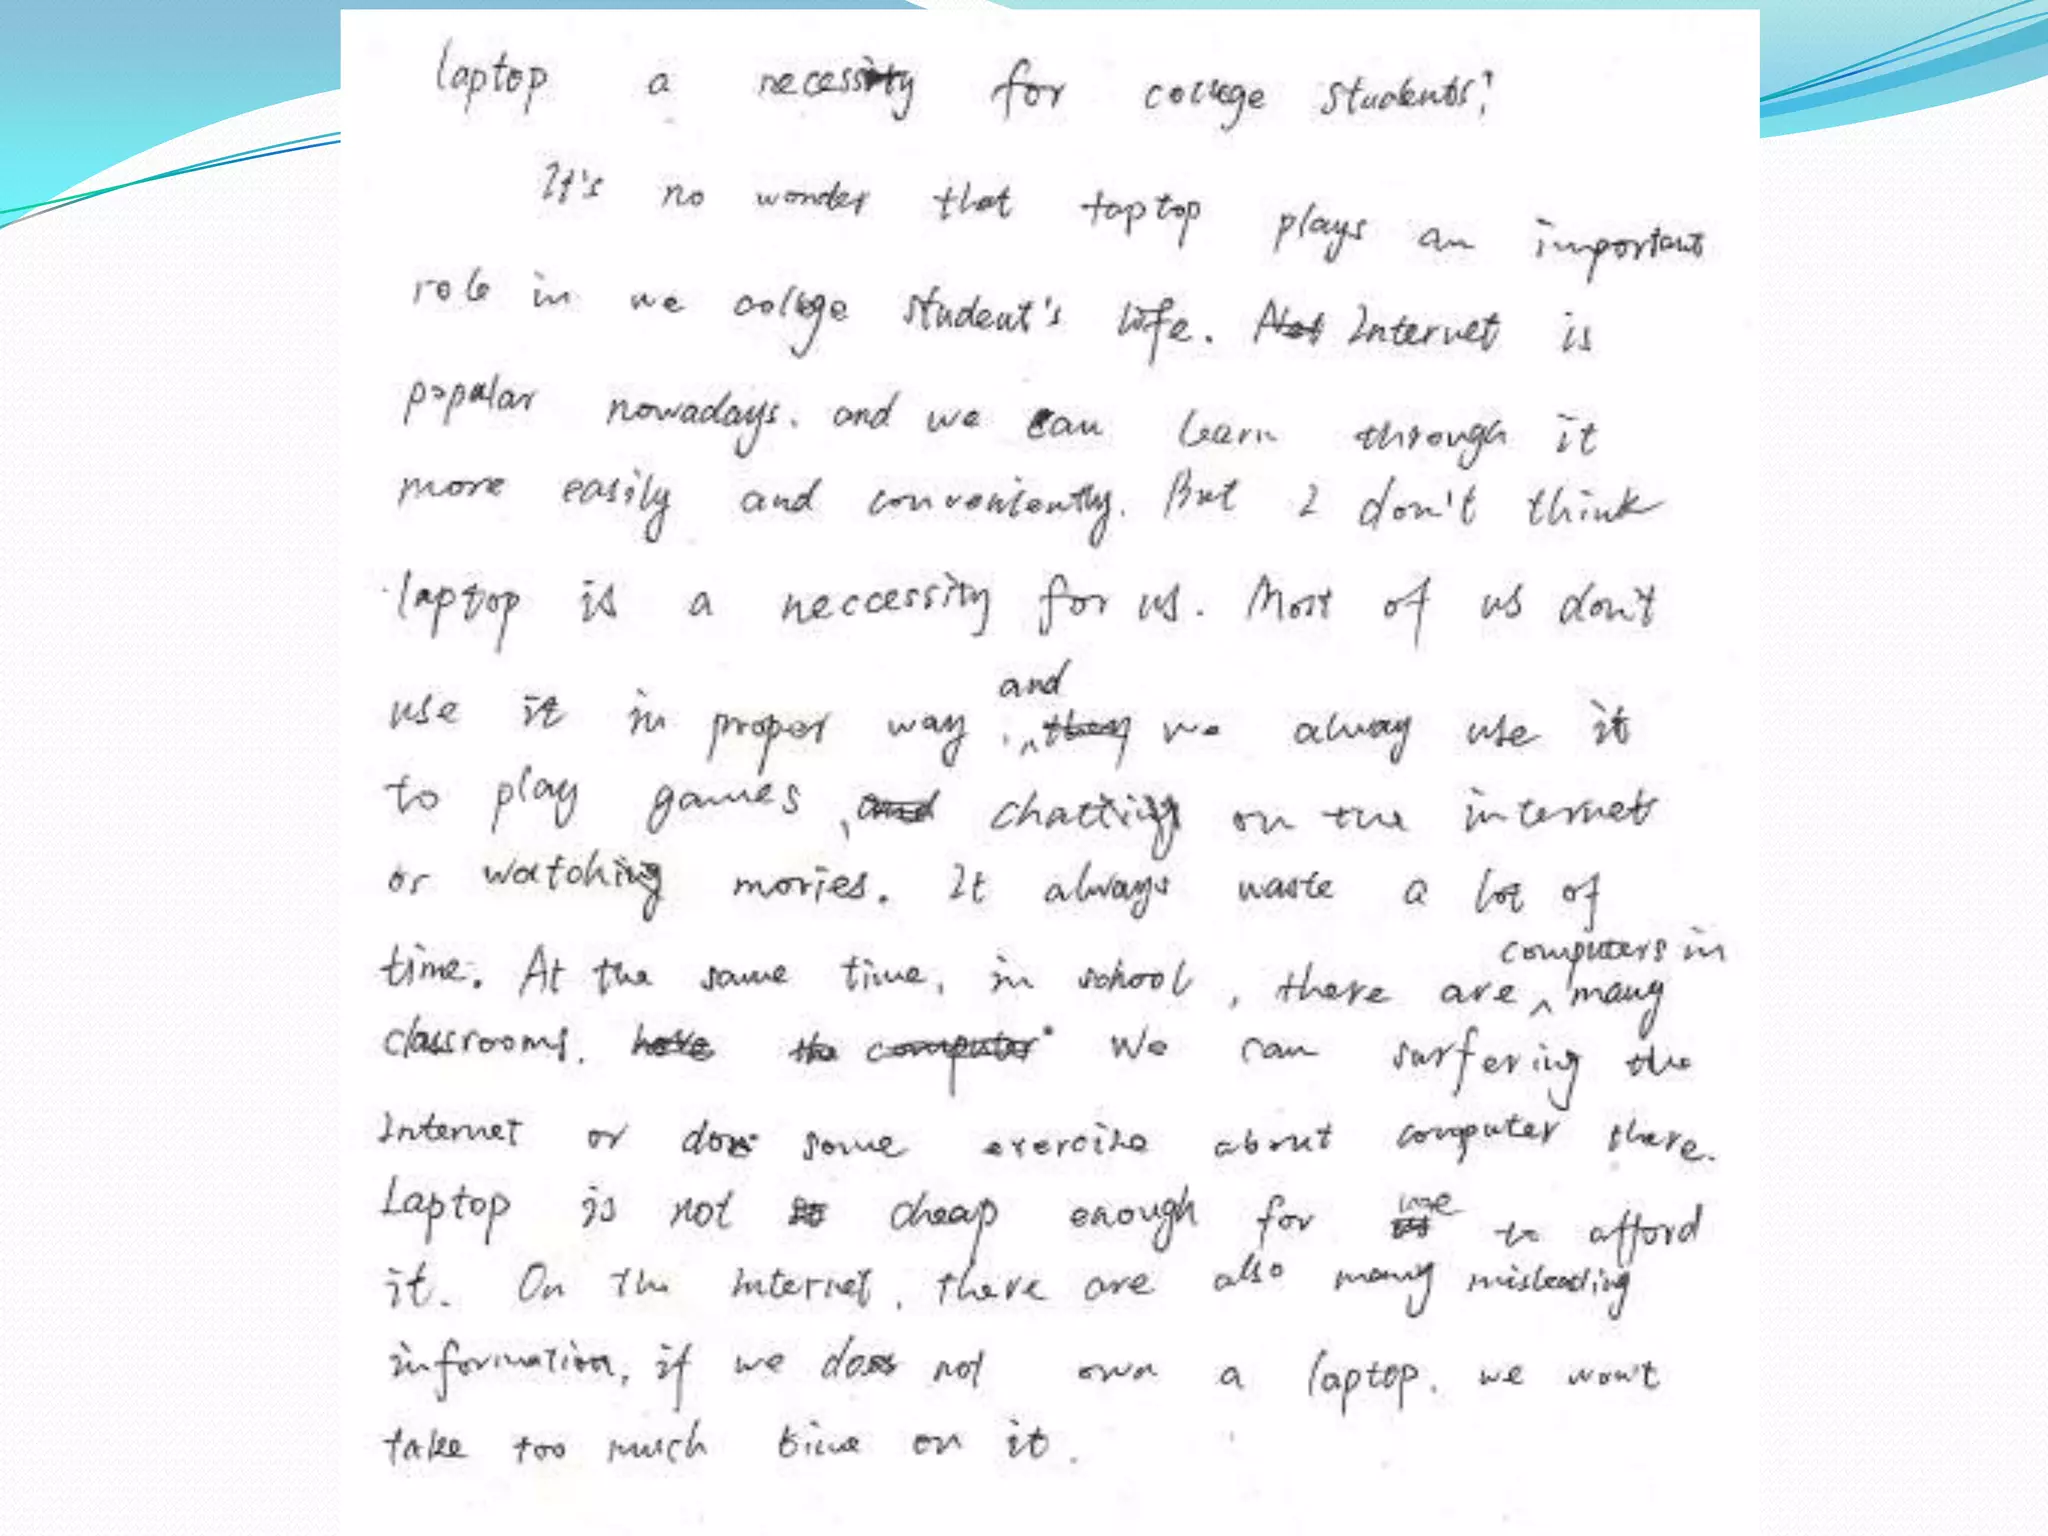 laptop a necessity for college students?
It's no wonder that laptop plays an important
role in we college student's life. Internet is
popular nowadays. and we can learn through it
more easily and conveniently. But I don't think
laptop is a neccessity for us. Most of us don't
use it in proper way. and we alway use it
to play games, chatting on the internet
or watching movies. It always waste a lot of
time. At the same time, in school, there are computers in many
classrooms. We can surfering the
Internet or do some exercise about computer there.
Laptop is not cheap enough for me to afford
it. On the Internet, there are also many misleading
information, if we do not own a laptop. we won't
take too much time on it.